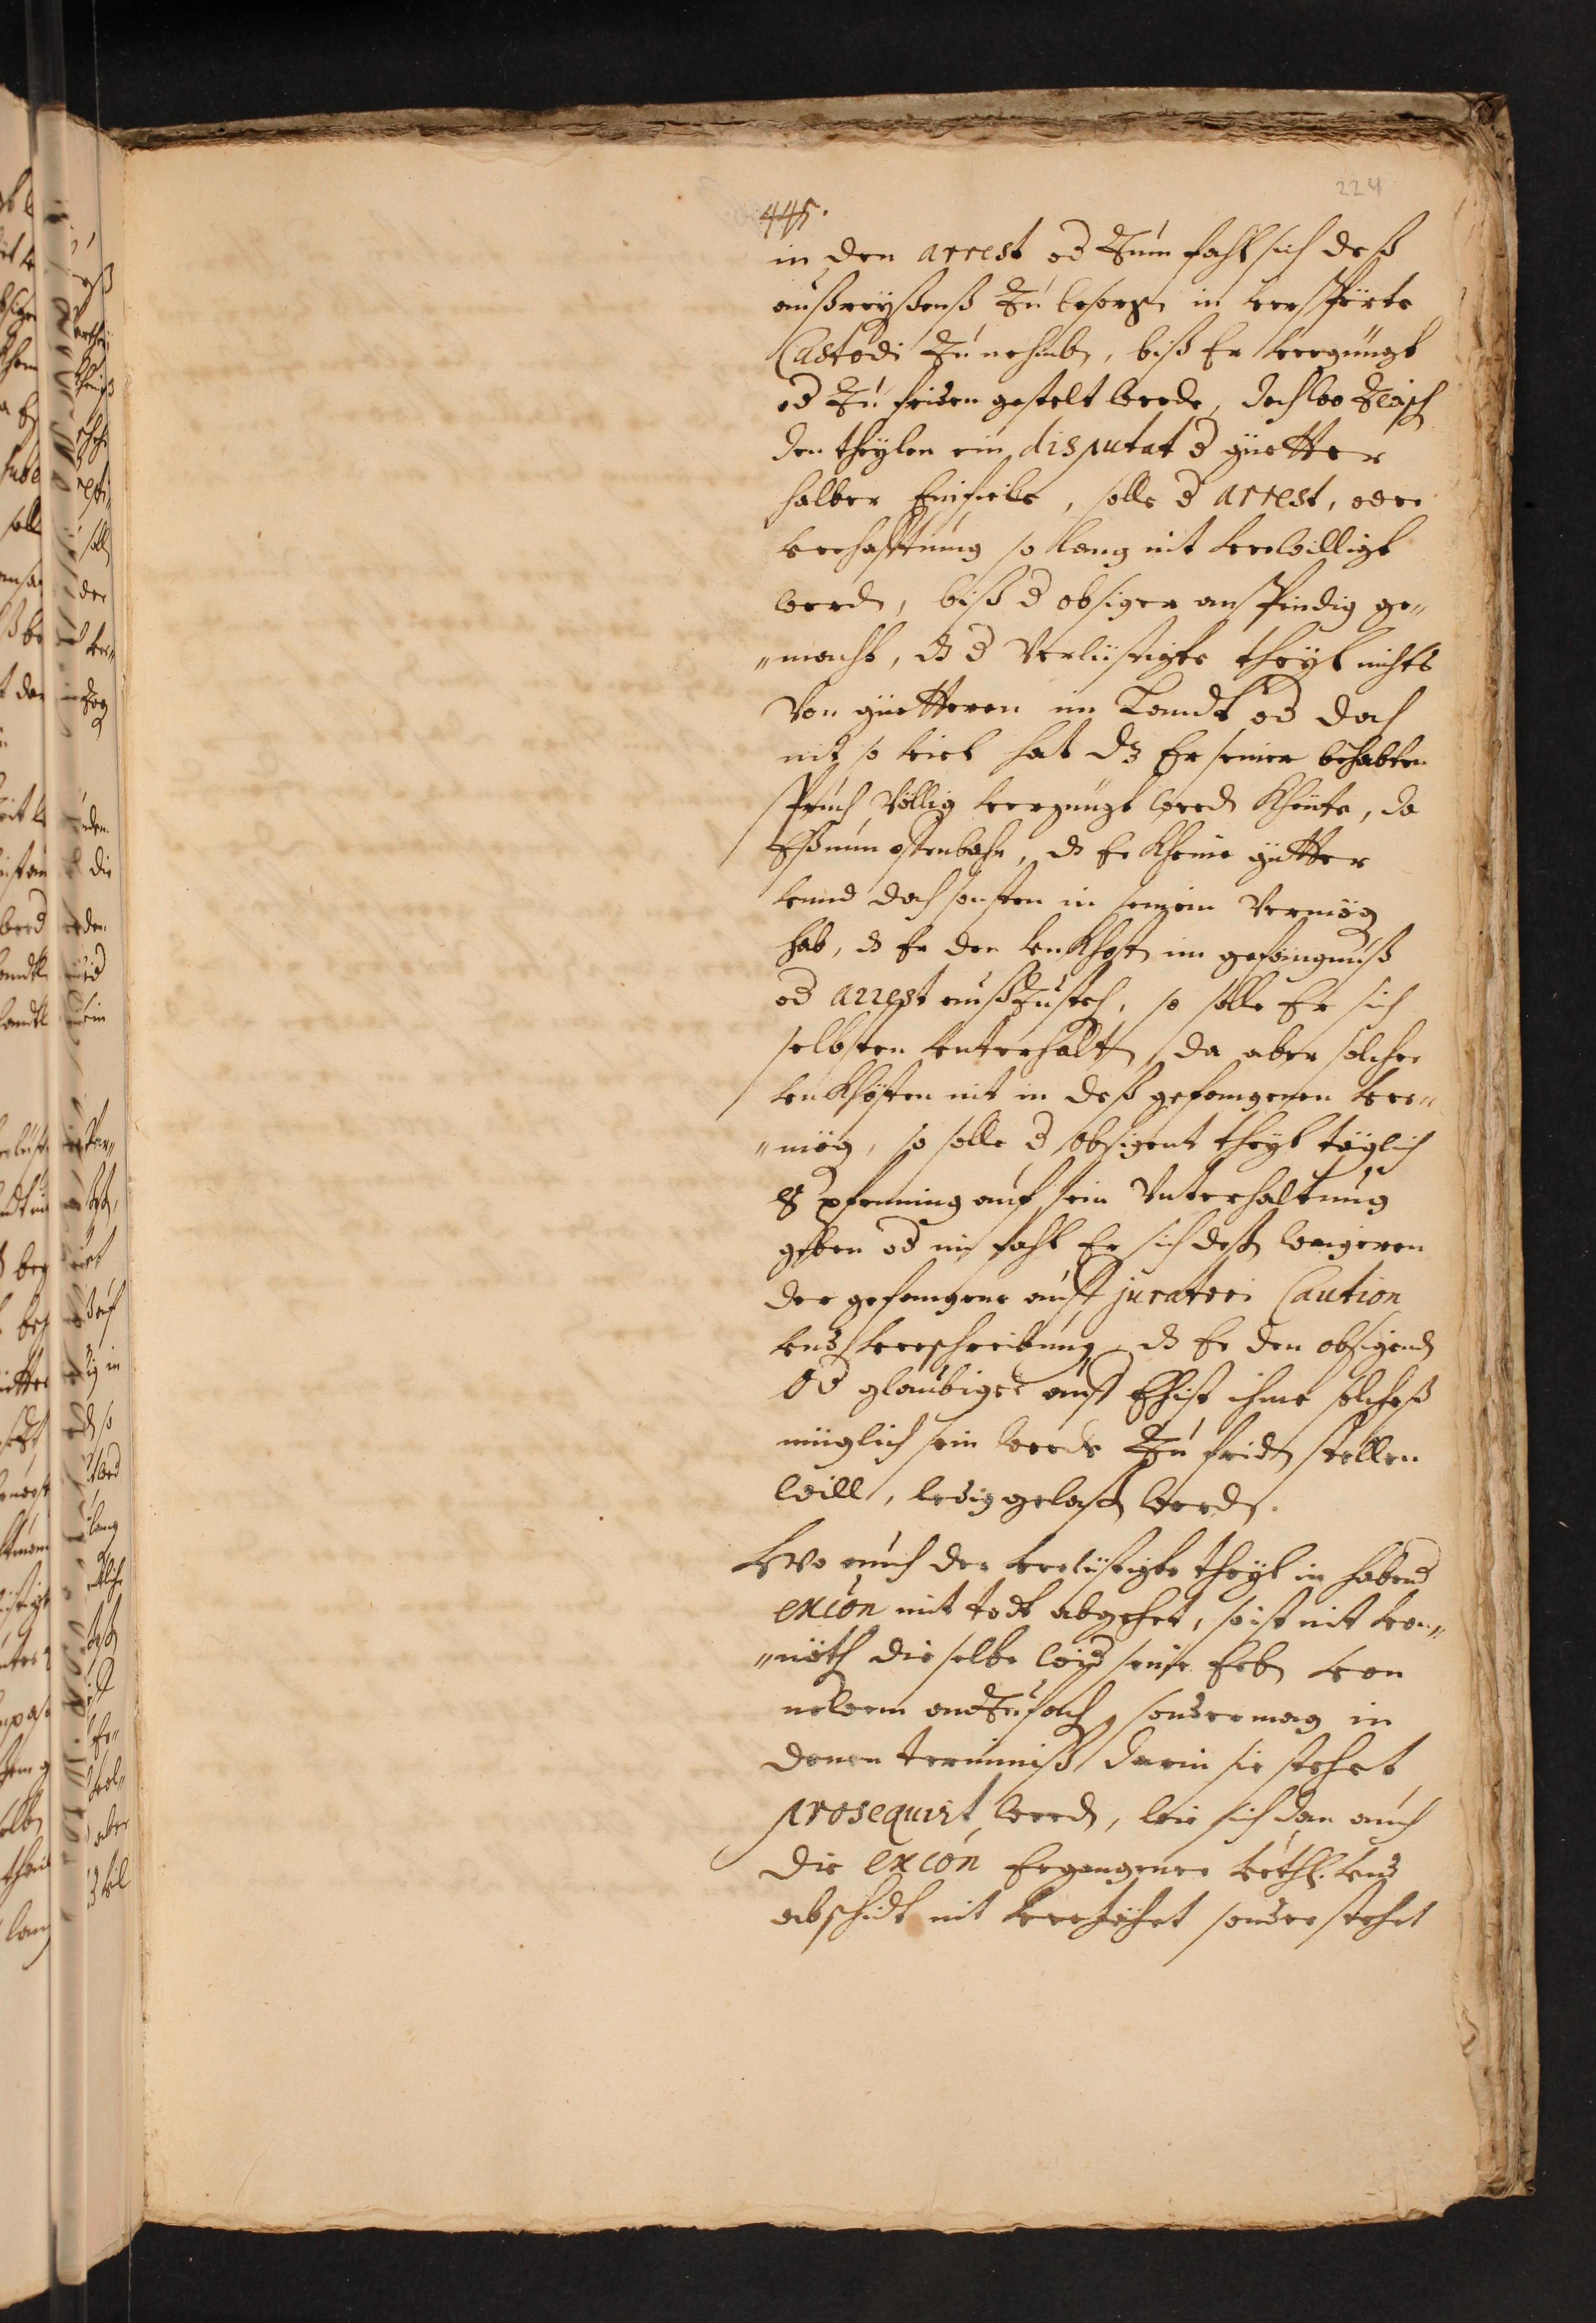 224
445.
in den arrest od Zum fahl sich deß
außreyßenß Zu besorgen in verspörte
Castodi Zu nehmben, biß Er vergnügt
od Zu friden gestelt werde, doch wo Zwisch
den theylen ein disputat d güetter
halber Einfiele, solle d arrest, oder
verhafftung so lang nit verwilligt
werden, biß d obsiger anspindig ge„
„macht, dz d Verlüstigte theyl nichts
Von güetteren im Landt od doch
nit so viel hat dz Er seiner behabten
spruch Völlig vergnügt werdn khönte, da
Eß nun offenbahr, dz Er kheine güetter
vnnd doch sonsten in seinem Vermög
hab, dz Er den vnkhosten im gefängnuß
od arrest außZustehen, so solle Er sich
selbsten vnterhalten, da aber solcher
vnkhosten nit in deß gefangenen ver„
„mög, so solle d obsigent theyl täglich
8 pfenning auf sein Vnterhaltung
geben od im fahl Er sich deßen waigeren
der gefangene auff juratori Caution
vnd verschreibung, dz Er den obsigenden
Od glaubiger auff Ehist ihme solcheß
müglich sein werde Zu friden stellen
will, ledig gelaßen werden.
Wo auch der verlüstigte theyl in habend
exion mit todt abgehet, so ist nit von„
„nöth dieselbe wid seine Erben von
newem anZufachen, sonder mag in
denen terminiß darin sie stehet
prosequirt werden, wie sich dan auch
die exion Ergangener vrthl. vnd
abschidt nit verjähret sonder stehet